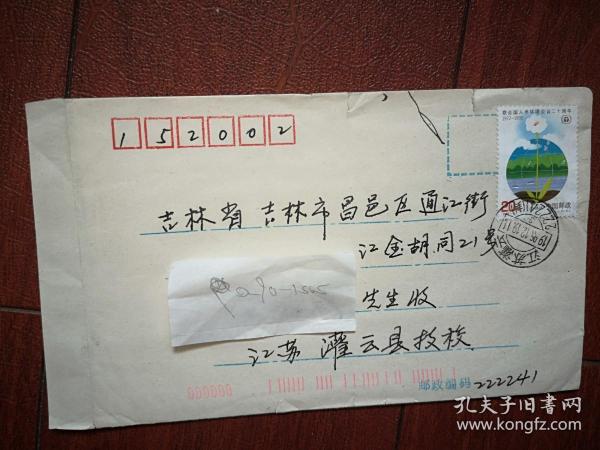 152002
联合国人类环境会议二十周年
1972-1992
20分
中国邮政
吉林省吉林市昌邑区通江街
江金胡同21号
先生收
江苏灌云县技校
000000
邮政编码 222241
孔夫子旧书网
www.kongfz.com